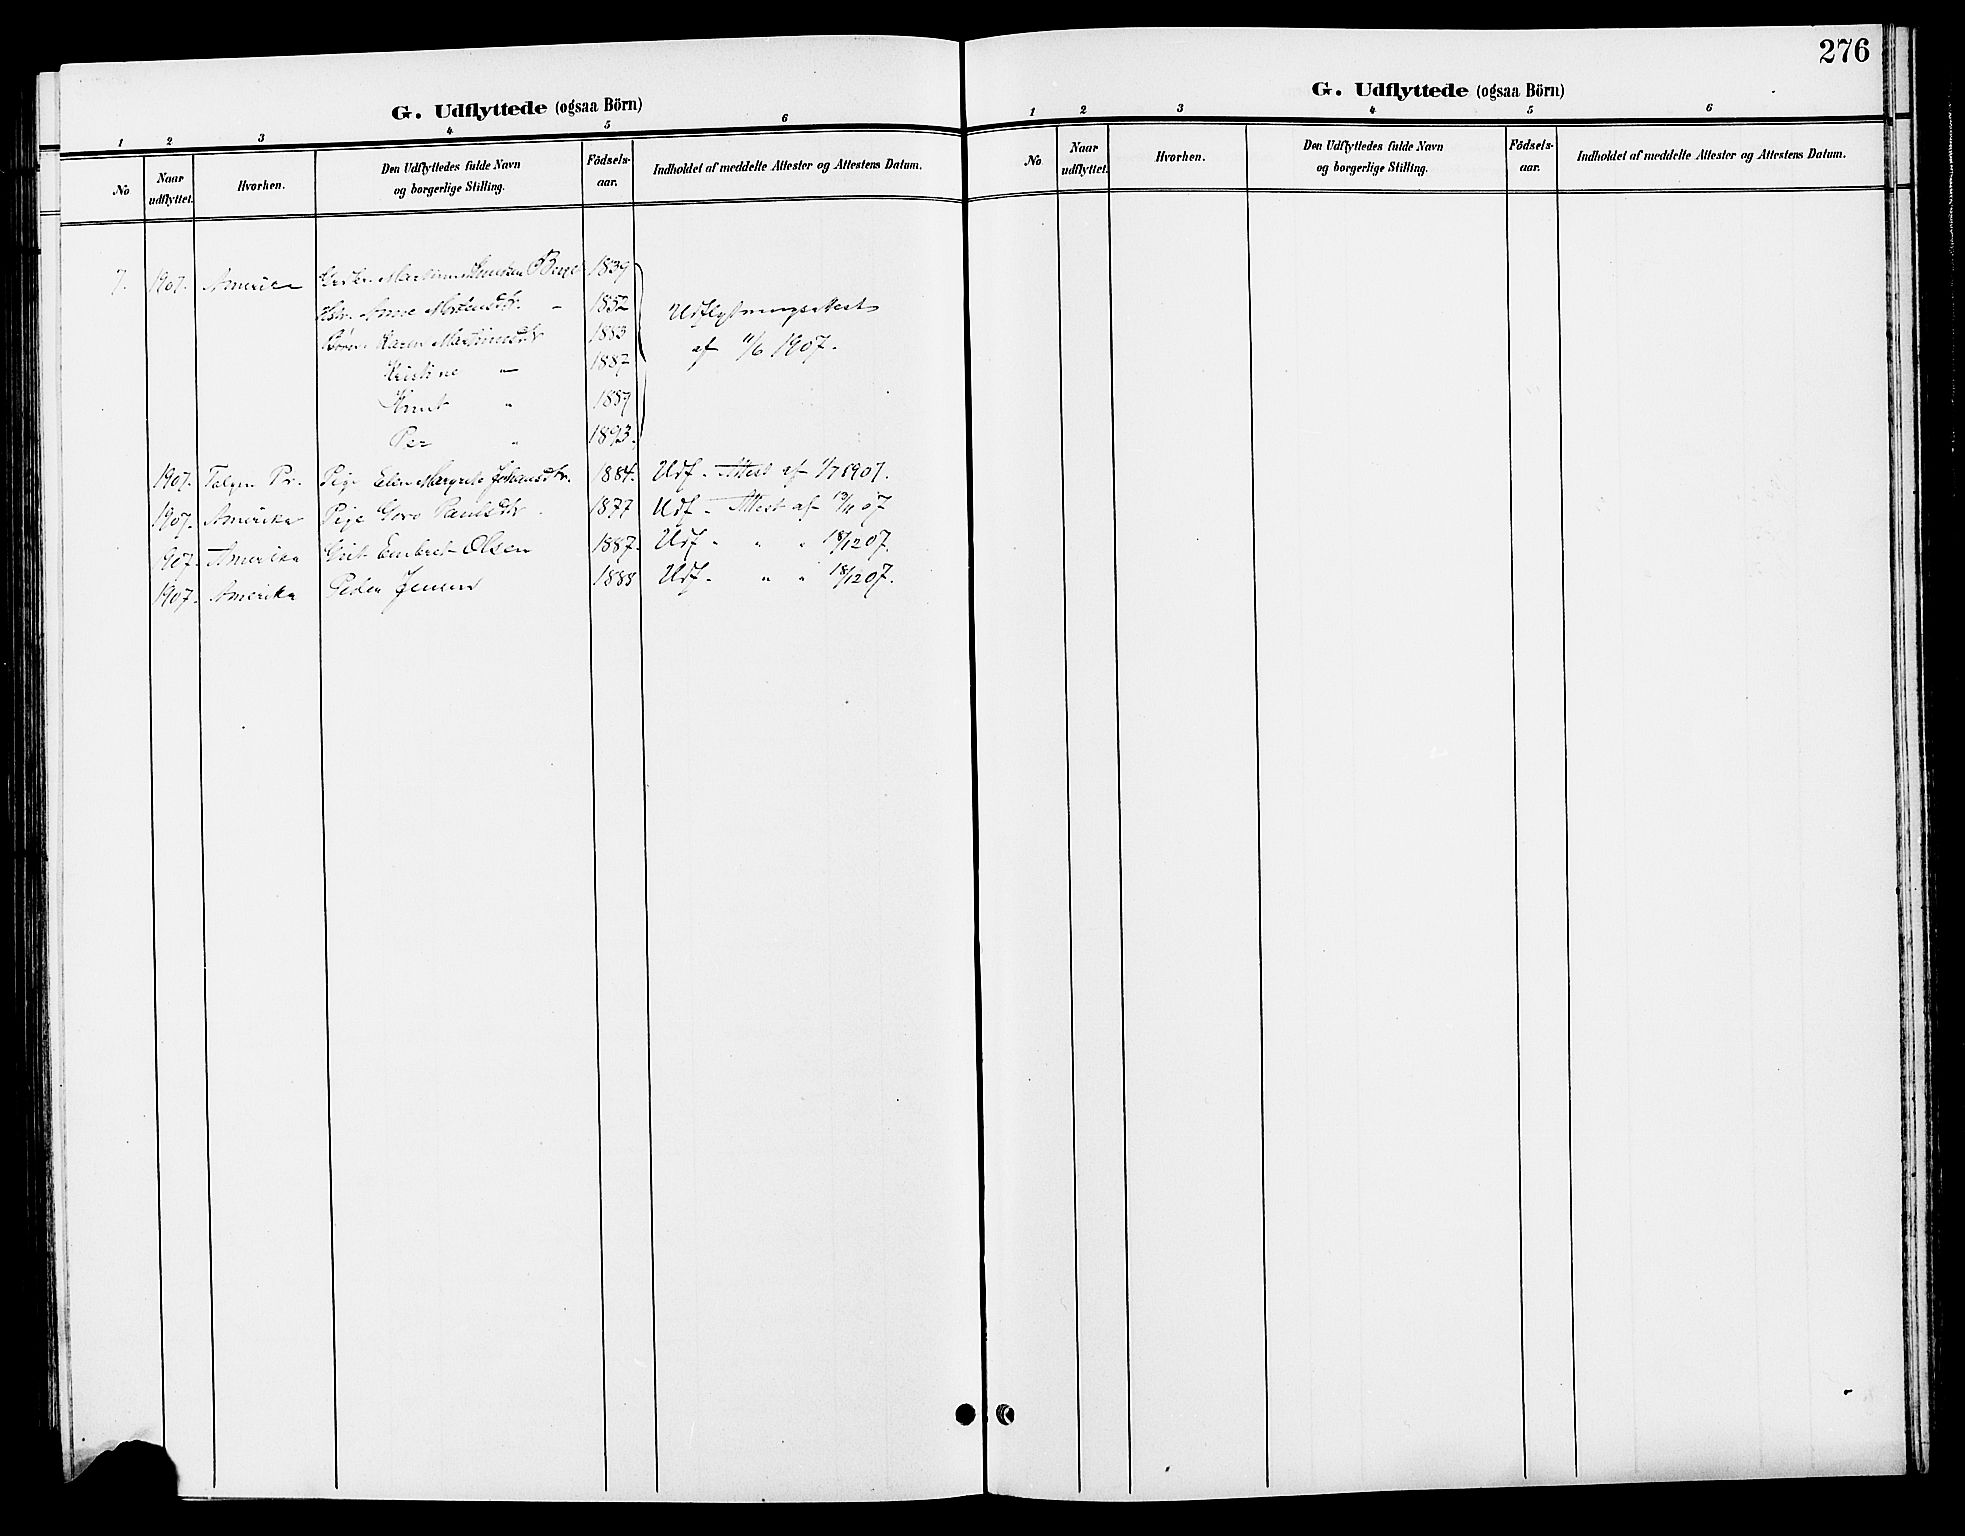 276
G. Udflyttede (ogsaa Börn)
1 2 3 4 5 6
No Naar udflyttet. Hvorhen. Den Udflyttedes fulde Navn og borgerlige Stilling. Födsels-aar. Indholdet af meddelte Attester og Attestens Datum.
7. 1907. Amerika Martinus Knutsen 1839
Anne 1852 Udflytningsattest
Børn Karen Martinusdtr 1883 af 11/6 1907.
Kristine " 1887
Knut " 1889
Per " 1893.
1907. Pr. Pige Elen Margrete Johansdtr. 1884. Udf. Attest af 1/7 1907.
1907. Amerika Pige Goro Paulsdtr. 1877 Udf. Attest af 13/11 07
1907. Amerika Embret Olsen 1887. Udf. " " 18/12 07.
1907. Amerika Peder Jensen 1888 Udf. " " 18/12 07.
G. Udflyttede (ogsaa Börn)
1 2 3 4 5 6
No Naar udflyttet. Hvorhen. Den Udflyttedes fulde Navn og borgerlige Stilling. Födsels-aar. Indholdet af meddelte Attester og Attestens Datum.